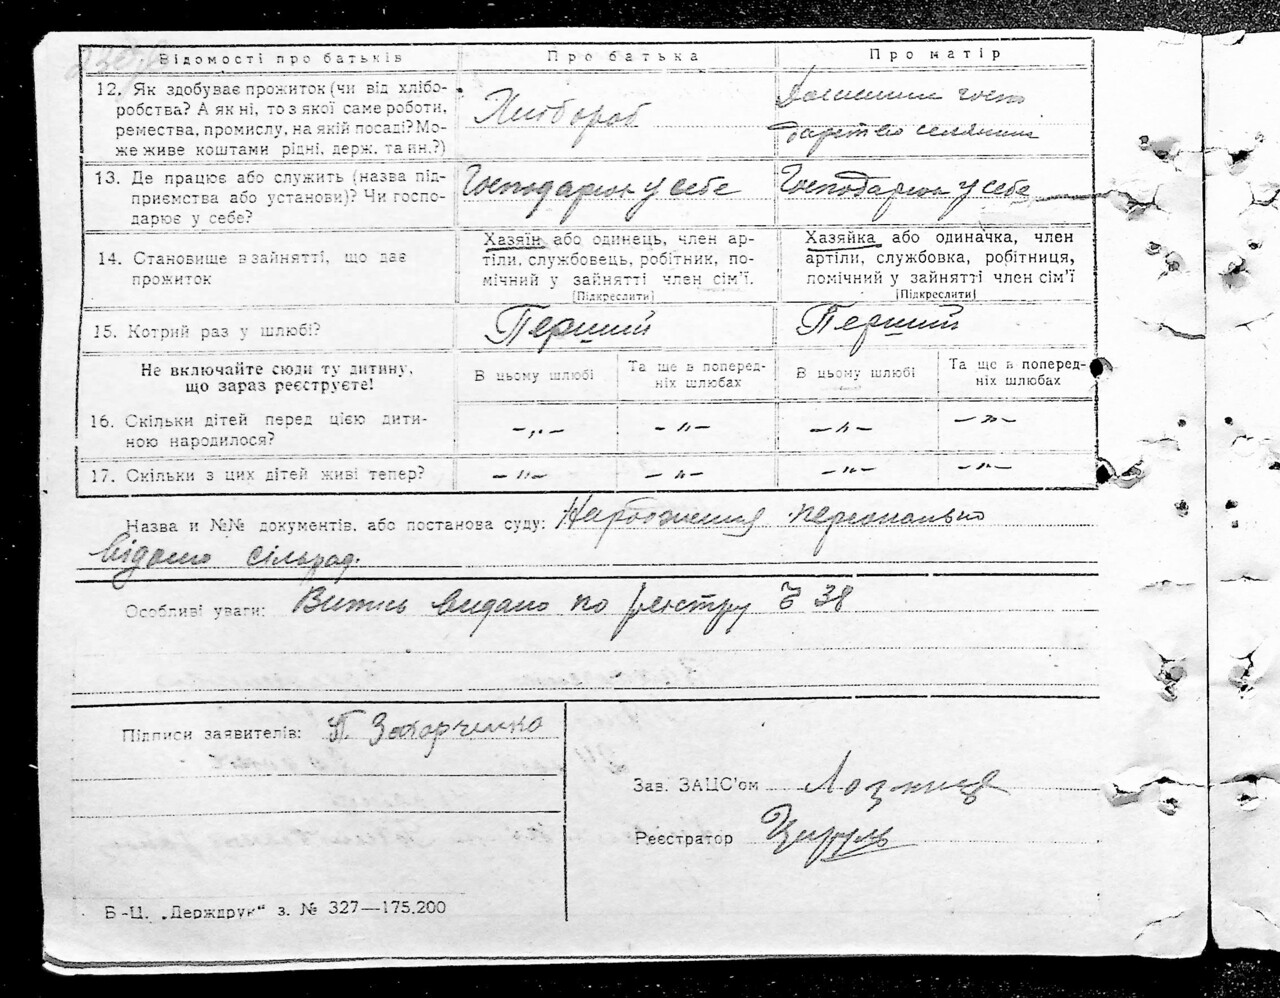 Відомості про батьків
Про батька
Про матір
12. Як здобуває прожиток (чи від хлібо-
робства? А як ні, то з якої саме роботи,
ремества, промислу, на якій посаді? Мо-
же живе коштами рідні, держ. та ин.?)
Хлібороб
Домашнім госпо
дарством селянин
13. Де працює або служить (назва під-
приємства або установи)? Чи госпо-
дарює у себе?
Господарює у себе
Господарює у себе
14. Становище в зайнятті, що дає
прожиток
Хазяїн або одинець, член ар-
тіли, службовець, робітник, по-
мічний у зайнятті член сім'ї.
[Підкреслити]
Хазяйка або одиначка, член
артіли, службовка, робітниця,
помічний у зайнятті член сім'ї
[Підкреслити]
15. Котрий раз у шлюбі?
Перший
Перший
Не включайте сюди ту дитину,
що зараз реєструєте!
В цьому шлюбі
Та ще в поперед-
ніх шлюбах
В цьому шлюбі
Та ще в поперед-
ніх шлюбах
16. Скільки дітей перед цією дити-
ною народилося?
-„-
-"-
-"-
-"-
17. Скільки з цих дітей живі тепер?
-"-
-"-
-"-
-"-
Назва и №№ документів, або постанова суду: Народження персонально
відомо сільрад.
Особливі уваги: Витяг видано по реєстру № 38
Підписи заявителів: П. Захарченко
Зав. ЗАЦС'ом Лозниця
Реєстратор Цируль
Б-Ц. „Держдрук" з. № 327—175.200